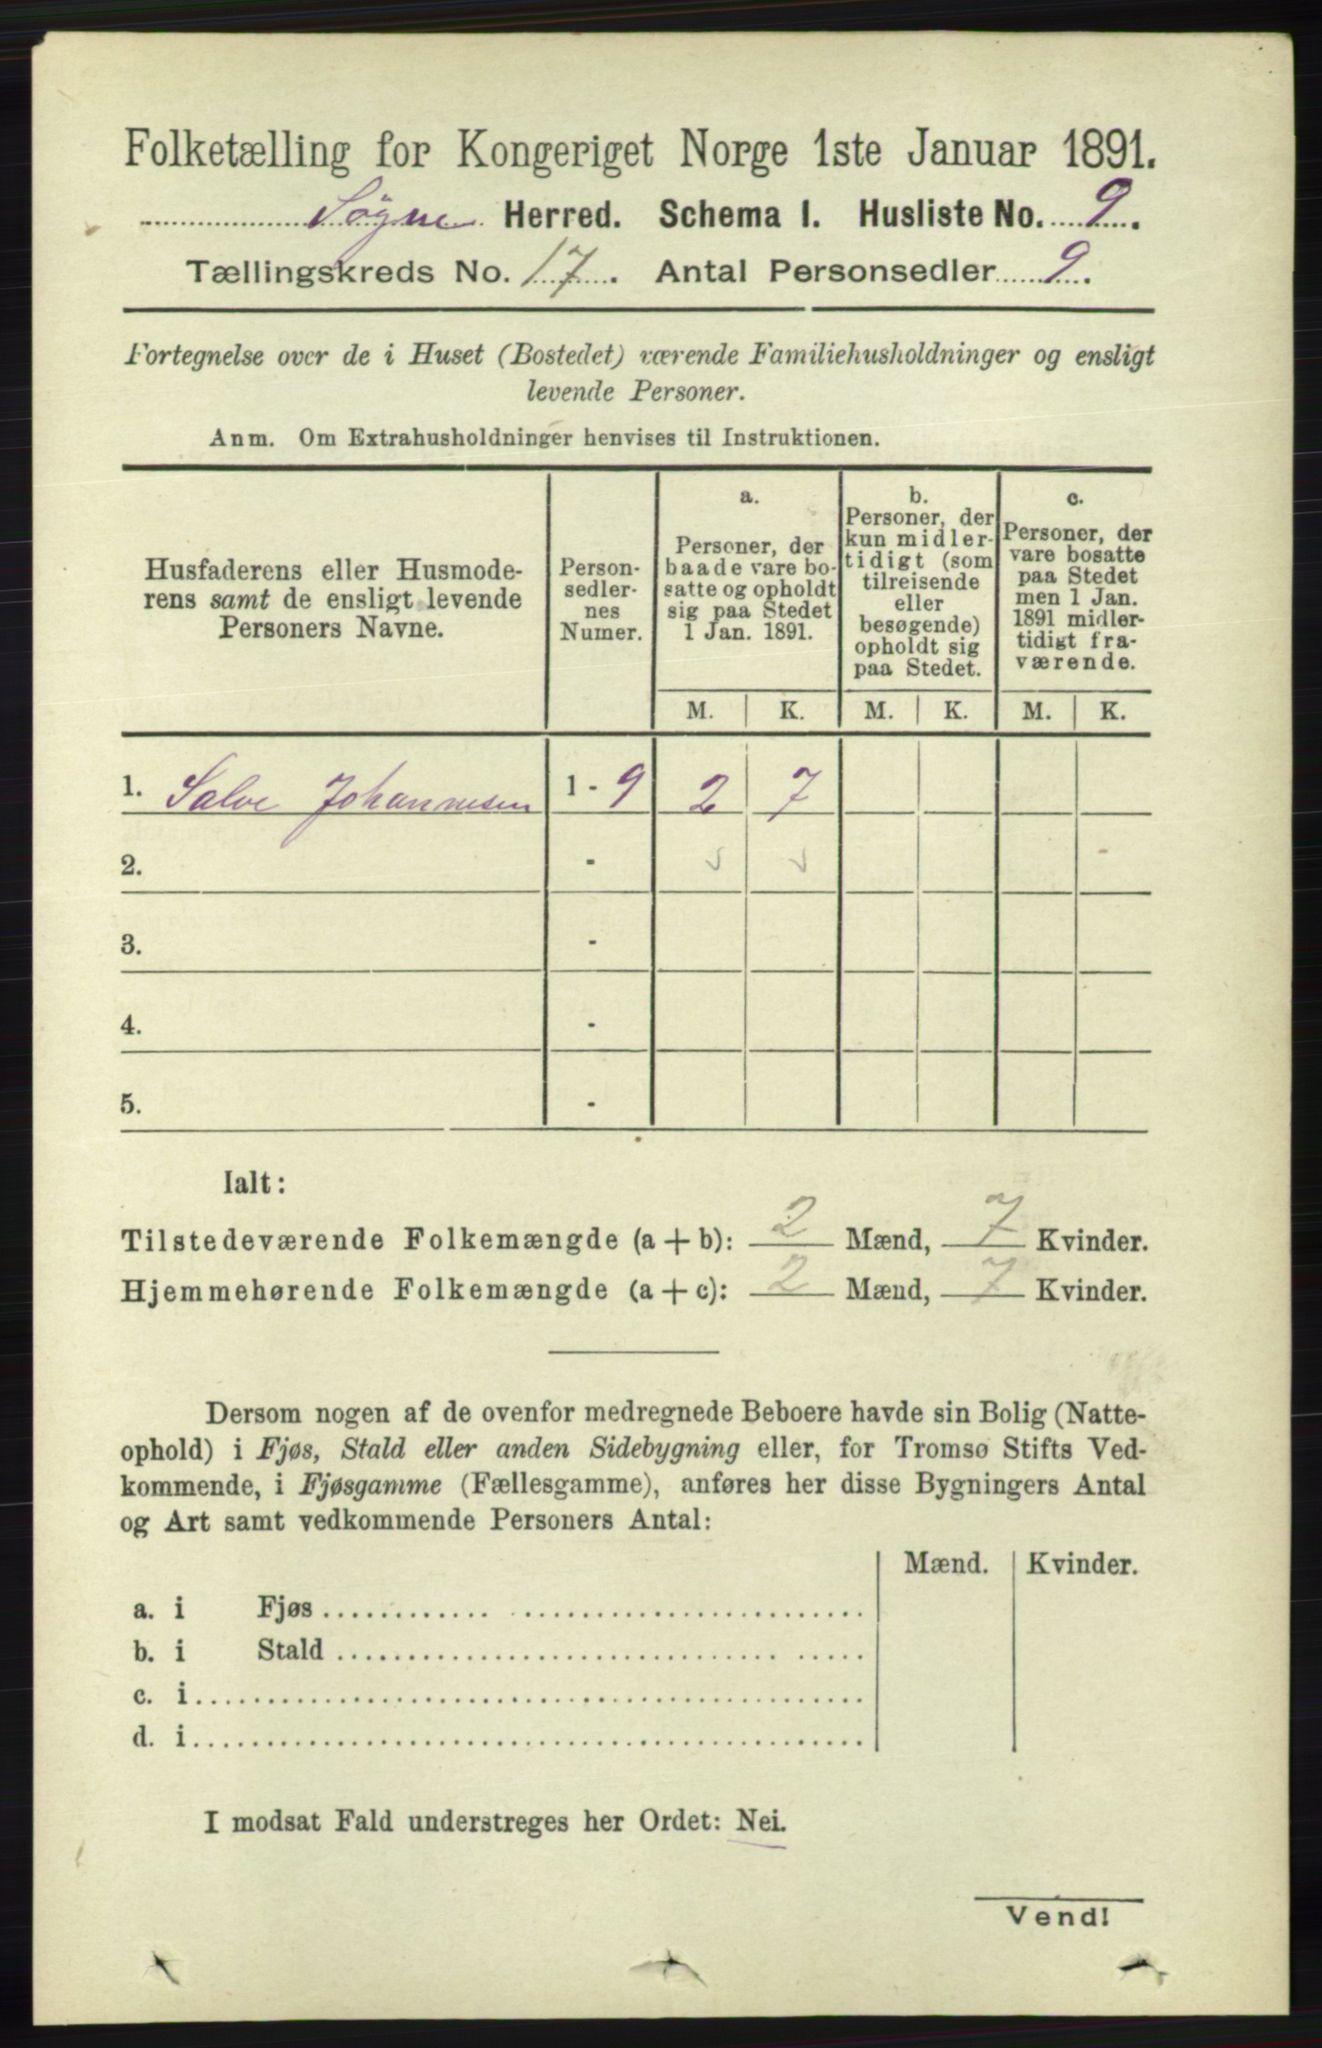 Folketælling for Kongeriget Norge 1ste Januar 1891.
Søgne Herred. Schema I. Husliste No. 9.
Tællingskreds No. 17. Antal Personsedler 9.
Fortegnelse over de i Huset (Bostedet) værende Familiehusholdninger og ensligt
levende Personer.
Anm. Om Extrahusholdninger henvises til Instruktionen.
Husfaderens eller Husmode-
rens samt de ensligt levende
Personers Navne.
Person-
sedler-
nes
Numer.
a.
Personer, der
baade vare bo-
satte og opholdt
sig paa Stedet
1 Jan. 1891.
b.
Personer, der
kun midler-
tidigt (som
tilreisende
eller
besøgende)
opholdt sig
paa Stedet.
c.
Personer, der
vare bosatte
paa Stedet
men 1 Jan.
1891 midler-
tidigt fra-
værende.
M. K. M. K. M. K.
1. Salve Johannesen 1 - 9 2 7
2. -
3. -
4. -
5. -
Ialt:
Tilstedeværende Folkemængde (a + b): 2 Mænd, 7 Kvinder.
Hjemmehørende Folkemængde (a + c): 2 Mænd, 7 Kvinder.
Dersom nogen af de ovenfor medregnede Beboere havde sin Bolig (Natte-
ophold) i Fjøs, Stald eller anden Sidebygning eller, for Tromsø Stifts Ved-
kommende, i Fjøsgamme (Fællesgamme), anføres her disse Bygningers Antal
og Art samt vedkommende Personers Antal:
Mænd. Kvinder.
a. i Fjøs
b. i Stald
c. i
d. i
I modsat Fald understreges her Ordet: Nei.
Vend!